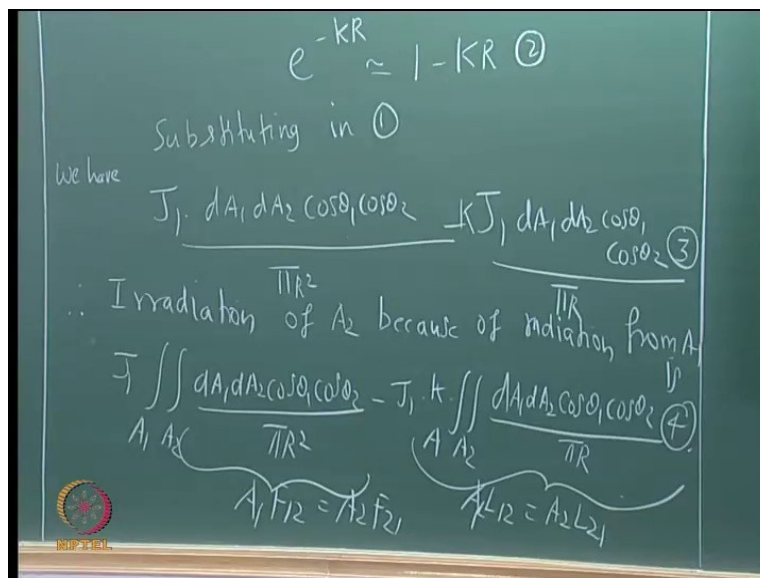 e^{-KR} ≃ 1 - KR ②
Substituting in ①
We have
J₁. dA₁ dA₂ cosθ₁ cosθ₂ / πR² - KJ₁ dA₁ dA₂ cosθ₁ cosθ₂ / πR ③
∴ Irradiation of A₂ because of radiation from A₁ is
J₁ ∬_{A₁ A₂} dA₁ dA₂ cosθ₁ cosθ₂ / πR² - J₁. K. ∬_{A₁ A₂} dA₁ dA₂ cosθ₁ cosθ₂ / πR ④
A₁F₁₂ = A₂F₂₁ A₁L₁₂ = A₂L₂₁
NPTEL